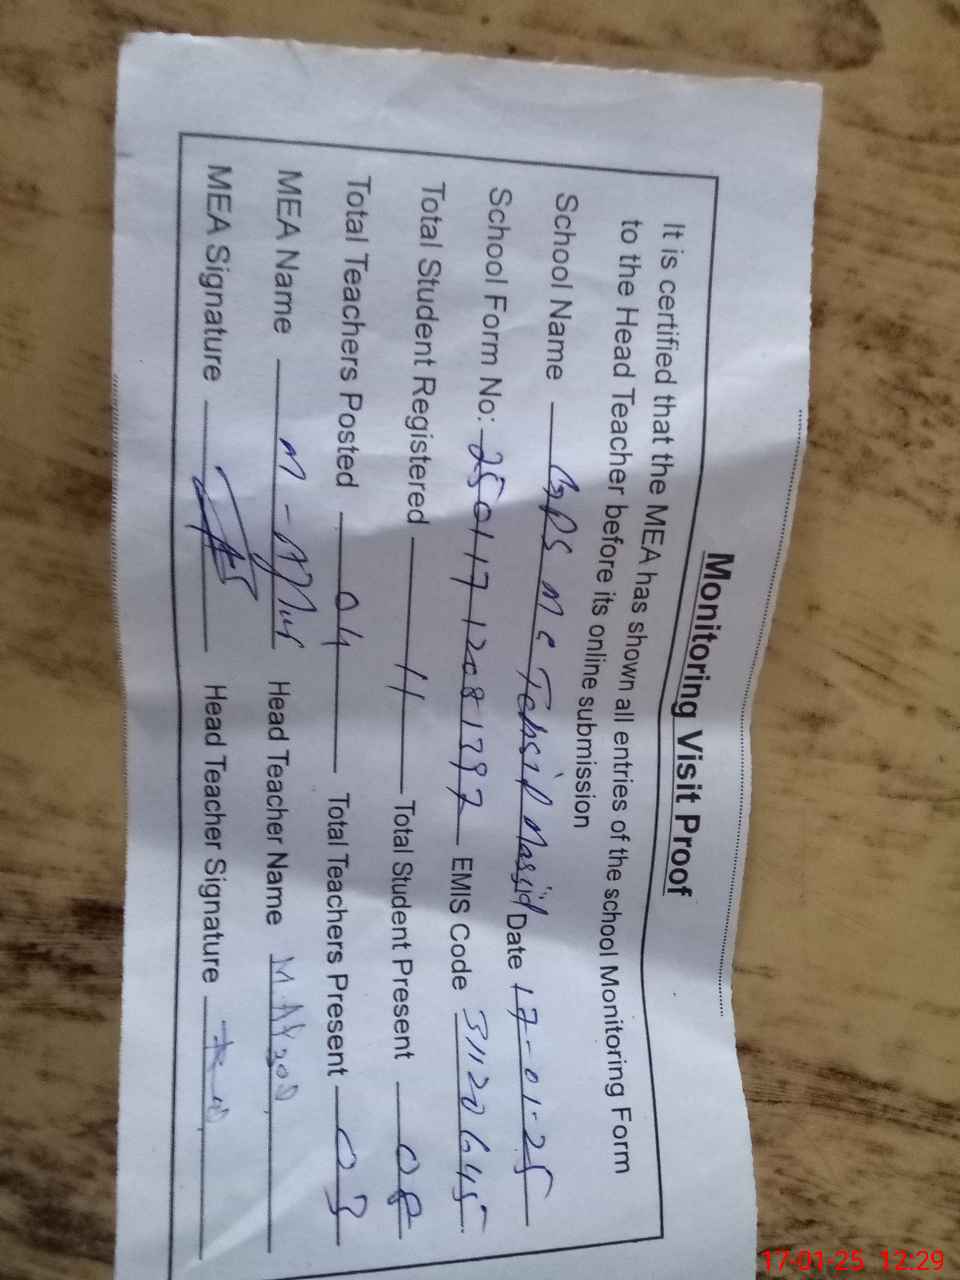 Monitoring Visit Proof
It is certified that the MEA has shown all entries of the school Monitoring Form
to the Head Teacher before its online submission
School Name GPS MC Tehsil Masjid Date 17-01-25
School Form No: 25011712081797 EMIS Code 31120645
Total Student Registered 11 Total Student Present 08
Total Teachers Posted 04 Total Teachers Present 03
MEA Name M - Head Teacher Name M.
MEA Signature Head Teacher Signature
17-01-25 12:29